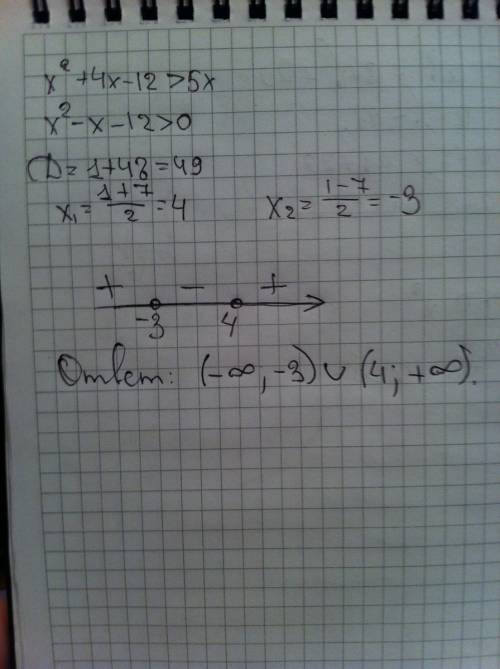 x² + 4x - 12 > 5x
x² - x - 12 > 0
D = 1 + 48 = 49
x₁ = (1+7)/2 = 4 x₂ = (1-7)/2 = -3
+ - +
-3 4
Ответ: (-∞, -3) ∪ (4; +∞).